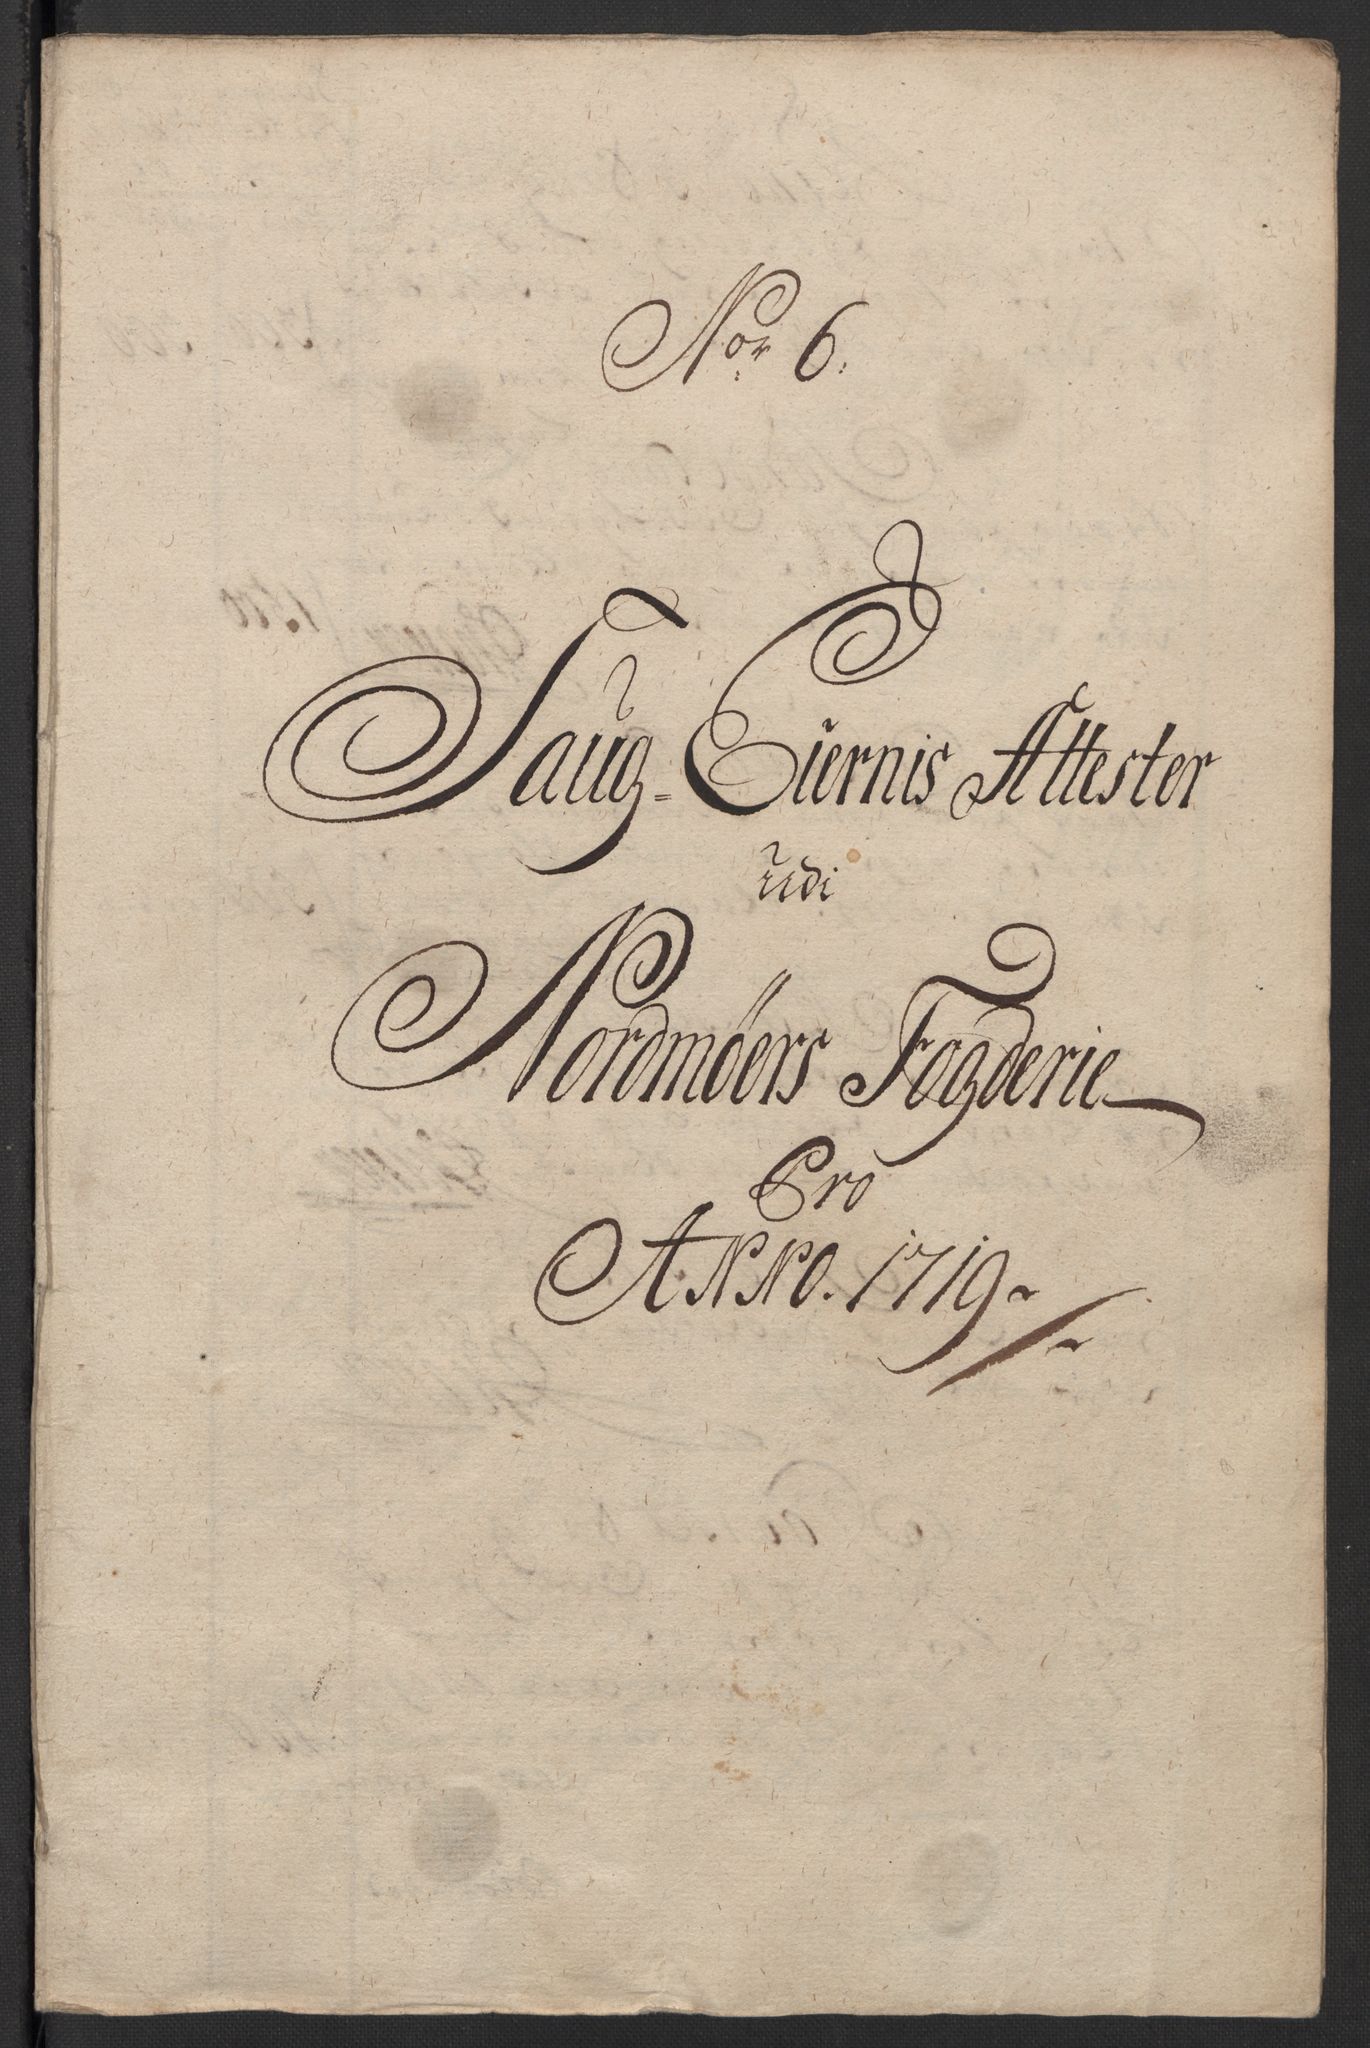 Nor 6.
Saug-Eiernis Attester
udi
Nordmöers Fogderie
Pro
ANNO. 1719